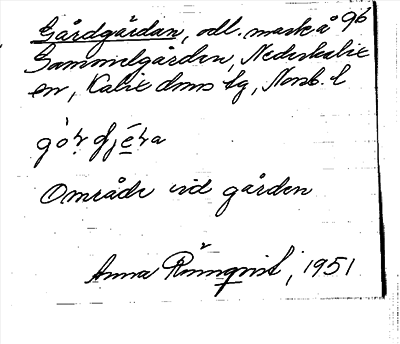 Gårdgärdan, odl. mark å 96
Gammelgården, Nederkalix
en, Kalix dms tg, Norrb. l
Område vid gården
Anna Rönnqvist, 1951